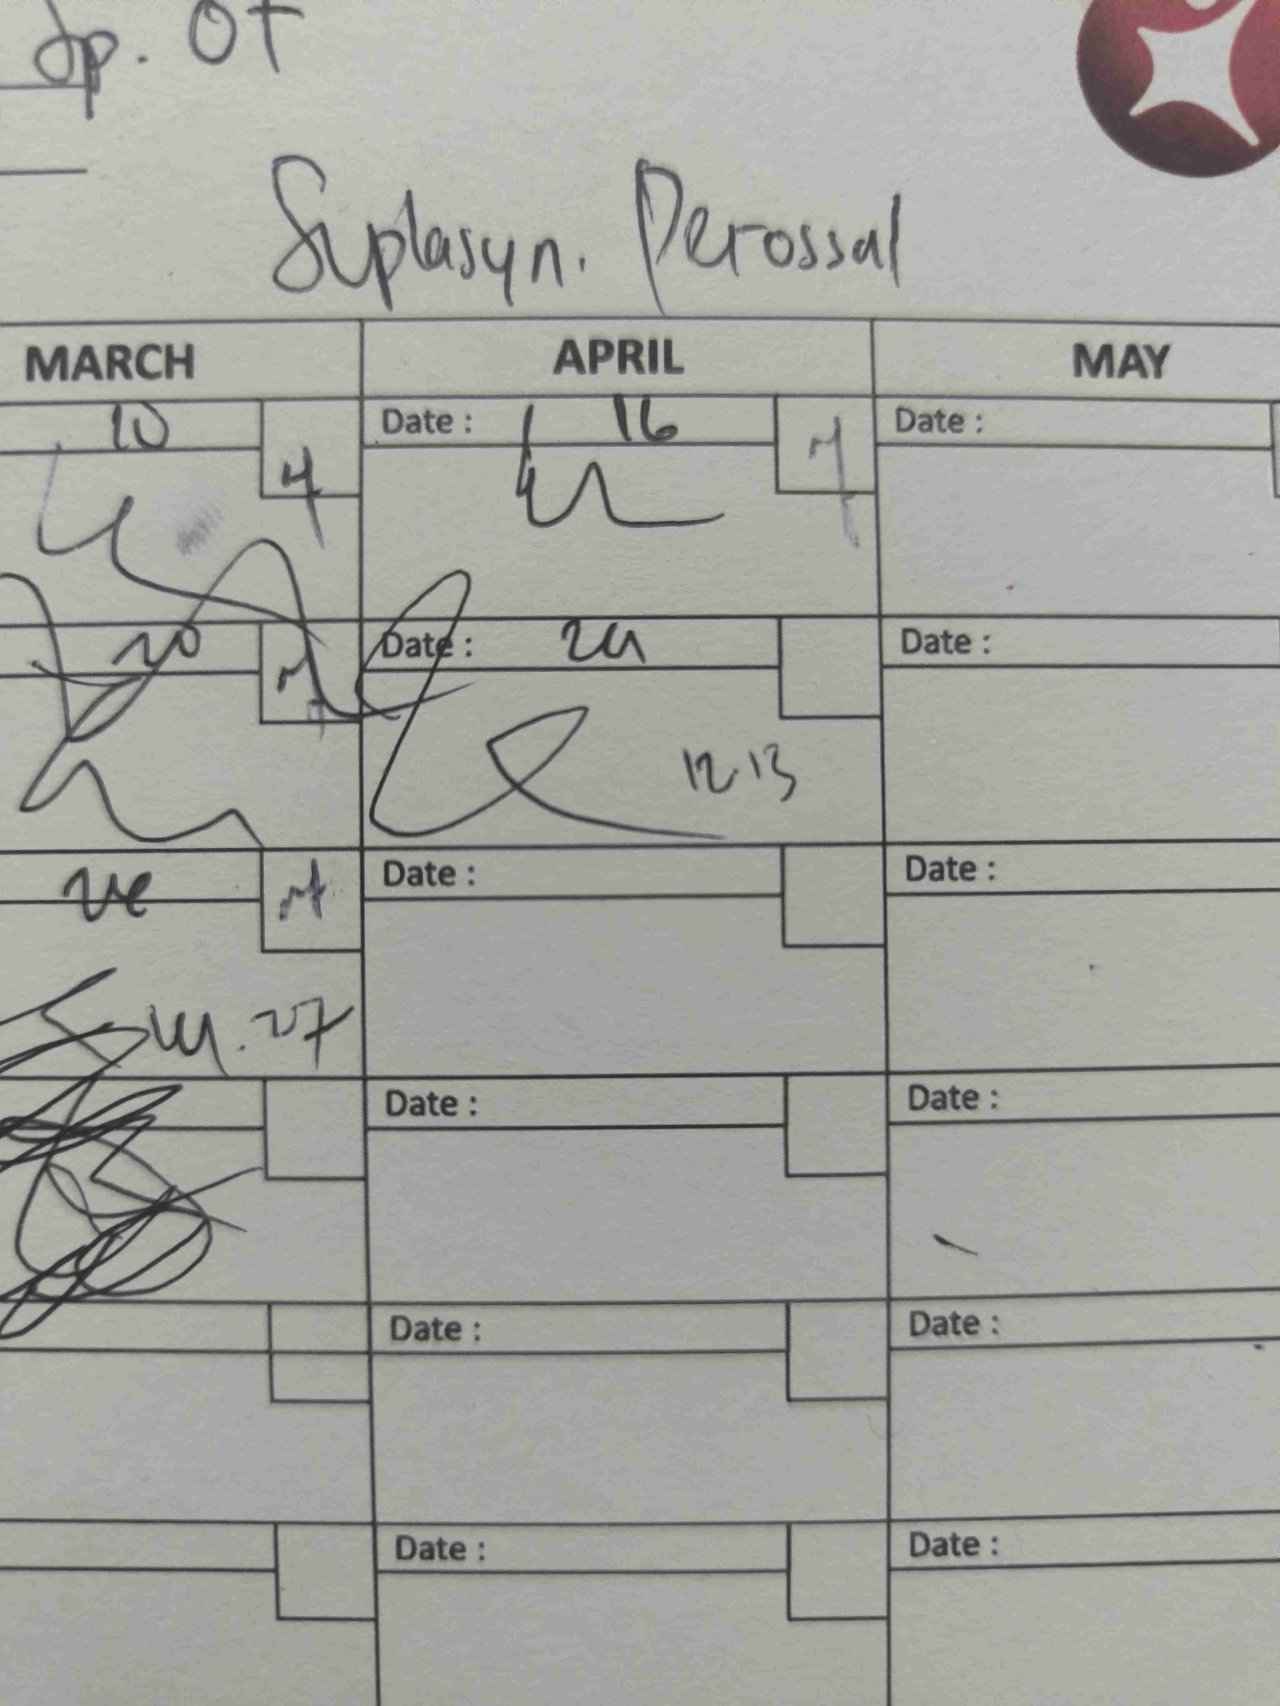 Sp. OT
Suplasyn. Perossal
MARCH APRIL MAY
10 Date : 16 Date :
20 Date : 24 Date :
12.13
Date : Date :
Date : Date :
Date : Date :
Date : Date :